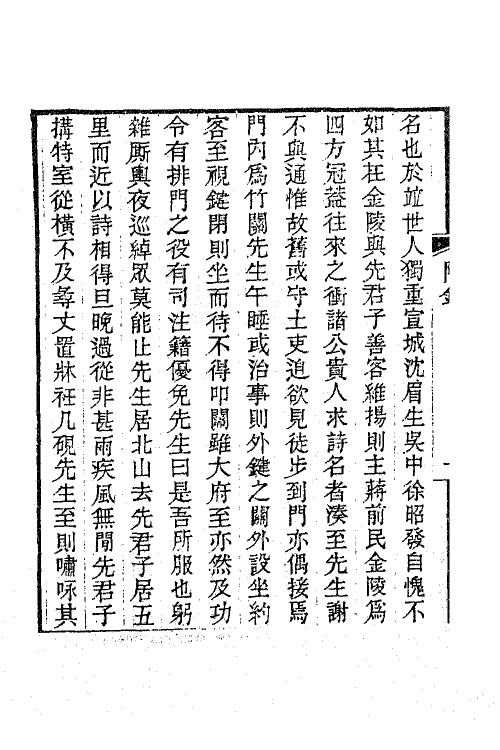 名也於並世人獨重宣城沈眉生吳中徐昭發自愧不
如其在金陵與先君子善客維揚則主蔣前民金陵爲
四方冠蓋往來之衝諸公貴人求詩名者湊至先生謝
不與通惟故舊或守土吏迫欲見徒步到門亦偶接焉
門內爲竹關先生午睡或治事則外鍵之關外設坐約
客至視鍵閉則坐而待不得叩關雖大府至亦然及功
令有排門之役有司注籍優免先生曰是吾所服也躬
雜厮輿夜巡綽眾莫能止先生居北山去先君子居五
里而近以詩相得旦晚過從非甚雨疾風無間先君子
搆特室從橫不及尋丈置牀衽几硯先生至則嘯咏其